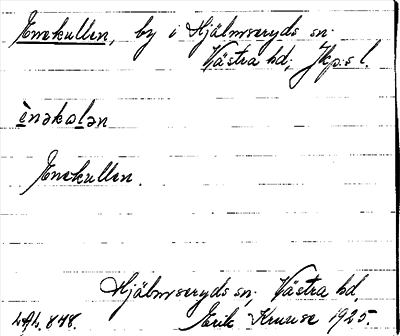 Enekullen, by i Hjälmseryds sn.
Västra hd; Jkp.s l.
ènəkɷlən
Enekullen.
Hjälmseryds sn; Västra hd.
LAL. 848. Erik Kruuse 1925